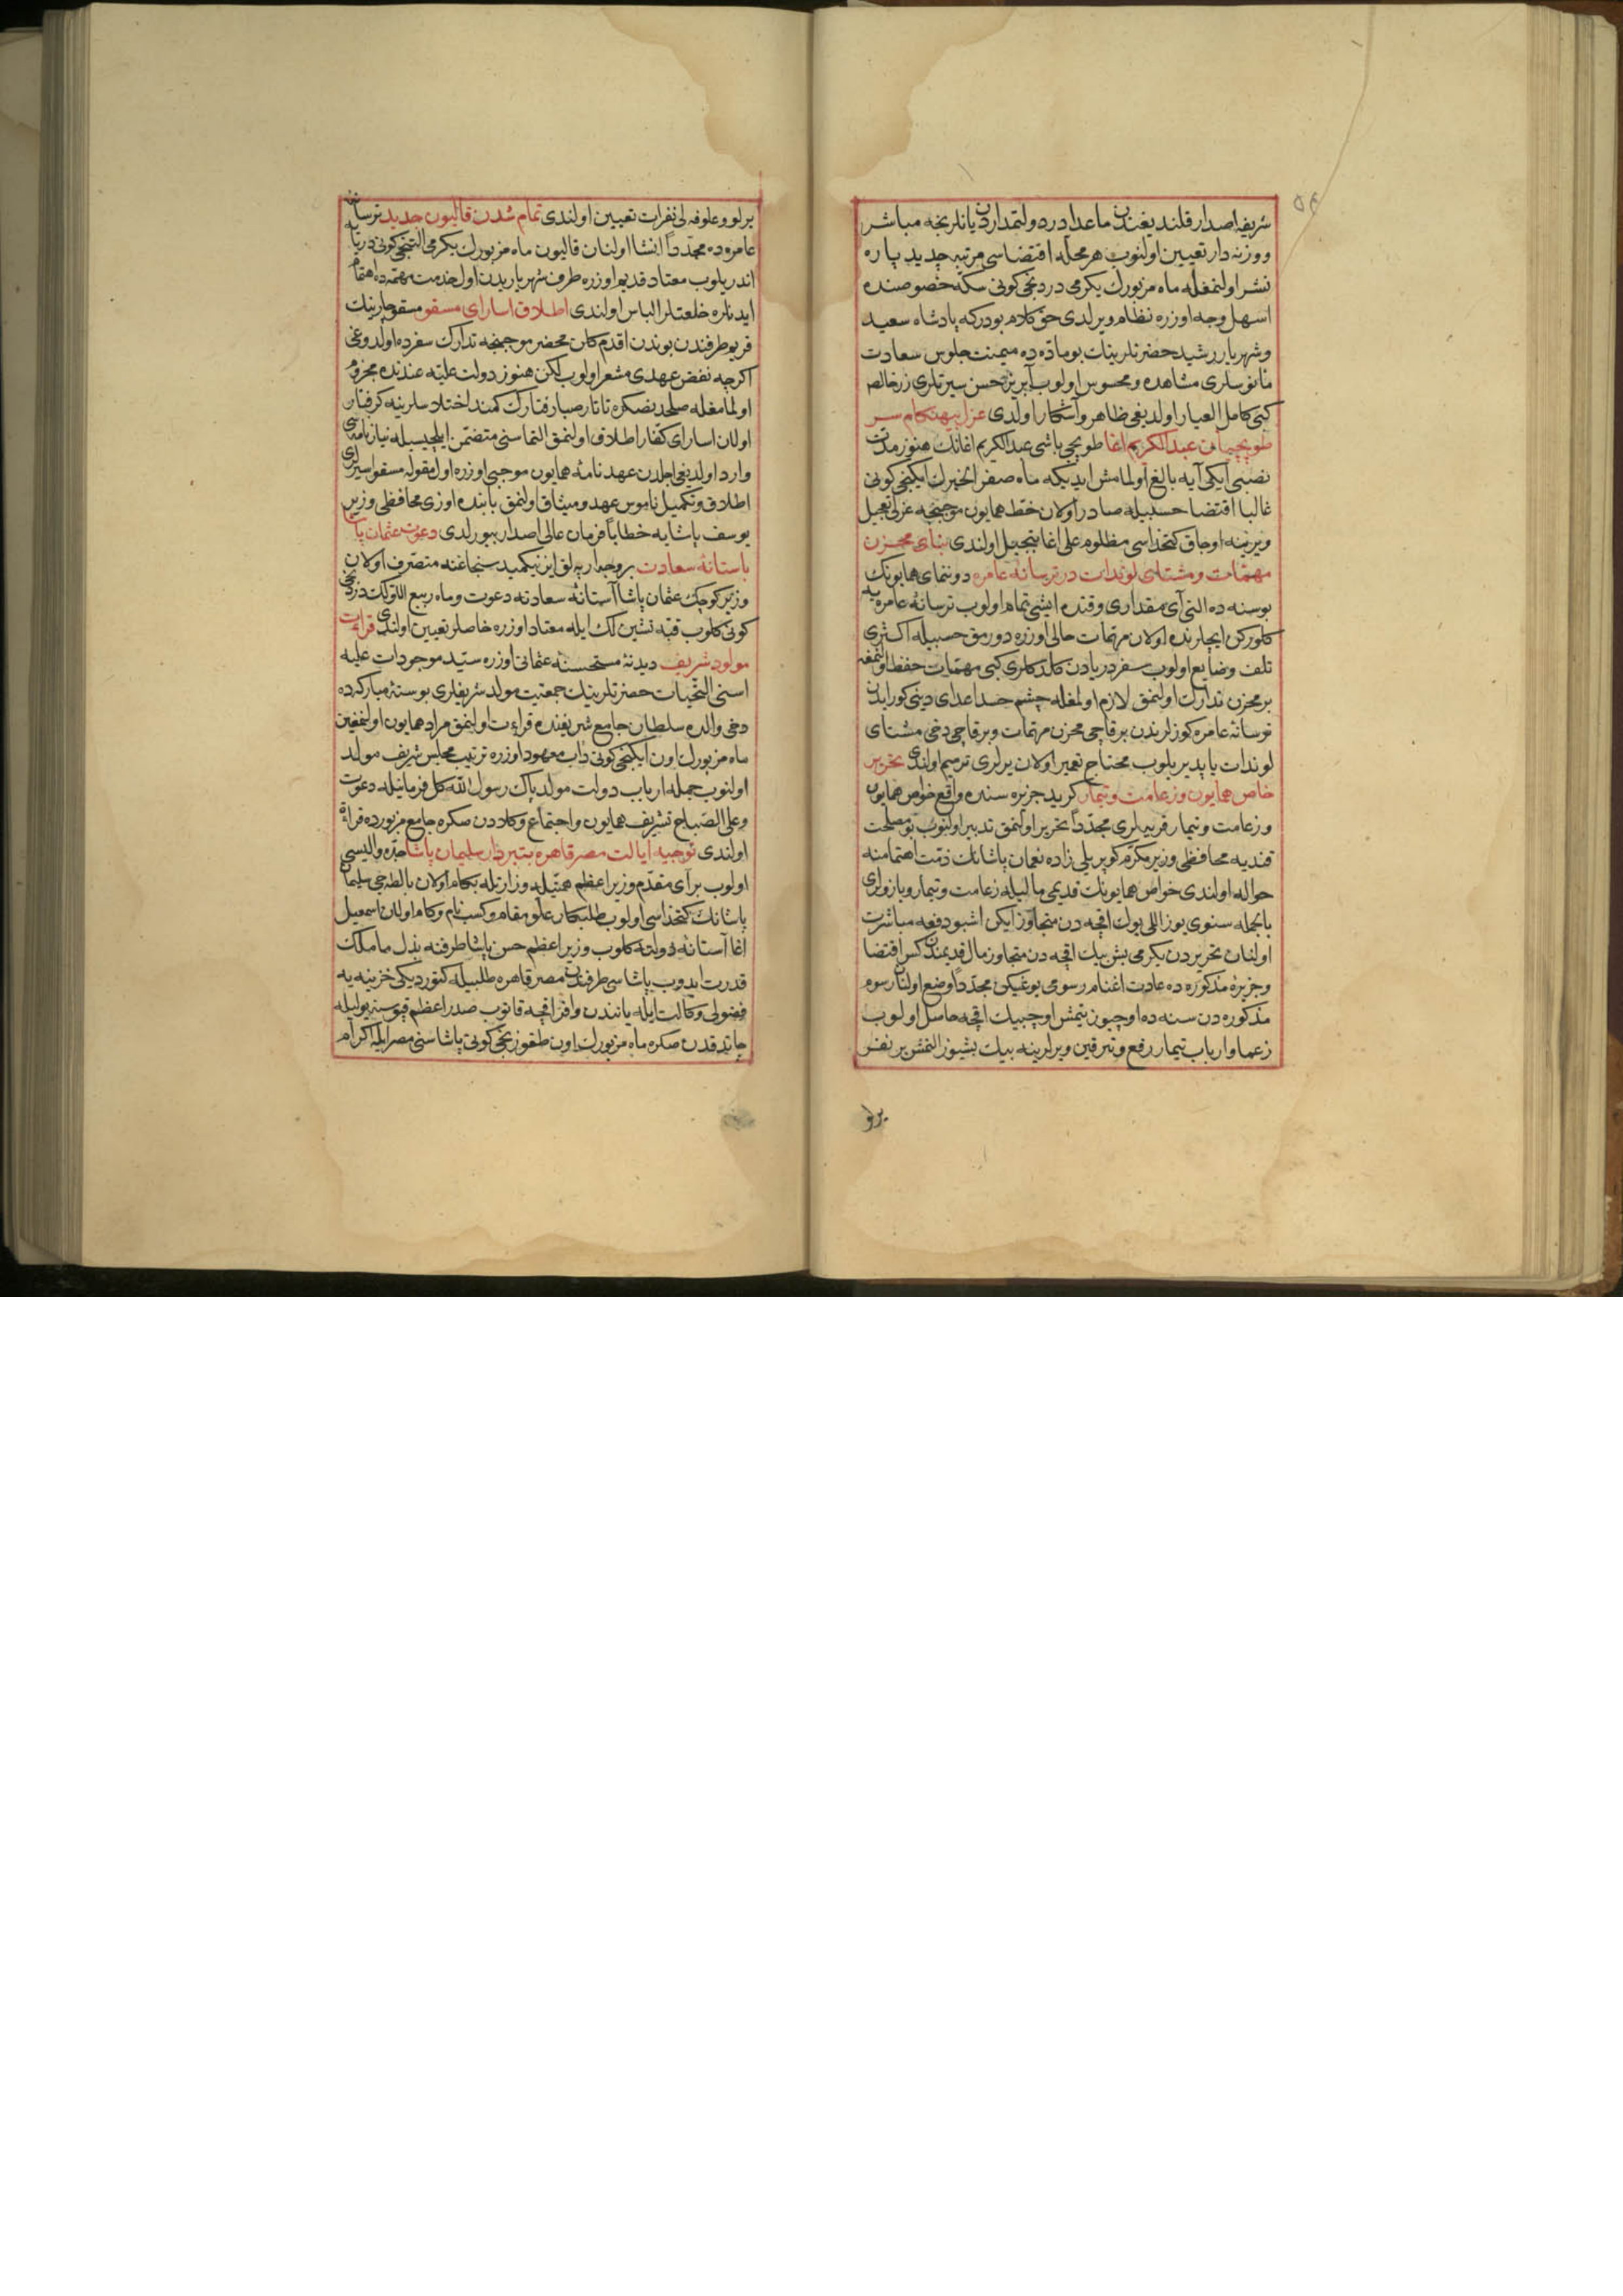 ٥٤
شریفه اصدار قلندیغندن ماعدا دردولتمداردن یانلرنجه مباشر
ووزنه دار تعیین اولنوب هر محله اقتضاسی مرتبه جدید پاره
نشر اولنمغله ماه مزبورك یکرمی دردنجی کونی سکه خصوصنده
اسهل وجه اوزره نظام ویرلدی حق کلام بودرکه پادشاه سعید
وشهریار رشید حضرتلرینك بو ماده ده میمنت جلوس سعادت
مأنوسلری مشاهده ومحسوس اولوب آبریز حسن سیرتلری زر خالص
کبی کامل العیار اولدیغی ظاهر وآشکار اولدی عزل بیهنکام سر
طوپچیان عبدالکریم اغا طوپچی باشی عبدالکریم اغانك هنوز مدت
نصبی ایکی آیه بالغ اولمامش ایدیکه ماه صفر الخیرك ایکنجی کونی
غالبا اقتضا حسبیله صادر اولان خط همایون موجبنجه عزلی تعجیل
ویرینه اوجاق کتخداسی مظلوم علی اغا تبجیل اولندی بنای مخزن
مهمات ومشتای لوندات در ترسانه عامره دوننمای همایونك
بوسنه ده التی آی مقداری وقتده ایشی تمام اولوب ترسانه عامره یه
کلورکن ایجلرنده اولان مهمات حالی اوزره دورمق حسبیله اکثری
تلف وضایع اولوب سفر دریادن کلدکلری کبی مهمات حفظ اولنمغه
بر مخزن تدارك اولنمق لازم اولمغله چشم حسد اعدای دینی کور ایدن
ترسانه عامره کوزلرندن برقاچی مخزن مهمات وبرقاچی دخی مشتای
لوندات یاپدیریلوب محتاج تعمیر اولان یرلری ترمیم اولندی تحریر
خاص همایون وزعامت وتیمار کرید جزیره سنده واقع خواص همایون
وزعامت وتیمار قریه لری مجددا تحریر اولنمق تدبیر اولنوب بو مصلحت
قندیه محافظی وزیر مکرم کوپریلی زاده نعمان پاشانك ذمت اهتمامنه
حواله اولندی خواص همایونك قدیمی مالیله زعامت وتیمار ویازولری
بالجمله سنوی یوز اللی یوك اقچه دن متجاوز ایکن اشبو دفعه مباشرت
اولنان تحریردن یکرمی بش بیك اقچه دن متجاوز مال قدیمندن کس اقتضا
وجزیره مذکوره ده عادت اغنام رسومی یوغیکن مجددا وضع اولنان رسوم
مذکوره دن سنه ده اوچیوز یتمش اوچ بیك اقچه حاصل اولوب
زعما وارباب تیمار رفع وترقین ویرلرینه بیك بشیوز التمش بر نفر
برلو
یرلو وعلوفه لی نفرات تعیین اولندی تمام شدن قالیون جدید ترسانه
عامره ده مجددا انشا اولنان قالیون ماه مزبورك یکرمی التنجی کونی دریایه
اندریلوب معتاد قدیم اوزره طرف شهریاریدن اول خدمت مهمه ده اهتمام
ایدنلره خلعتلر الباس اولندی اطلاق اسارای مسقو مسقو چارینك
قریم طرفندن بوندن اقدم کلان محضر موجبنجه تدارك سفرده اولدوغی
اکرچه نقض عهدی مشعر اولوب لکن هنوز دولت علیه عندنده مجزوم
اولمامغله صلحدنصکره تاتار صبارفتارك کمند اختلاسلرینه کرفتار
اولان اسارای کفار اطلاق اولنمق التماسنی متضمن ایلچیسیله نیازنامه سی
وارد اولدیغی اجلدن عهدنامه همایون موجبی اوزره اول مقوله مسقو اسیرلری
اطلاق وتکمیل ناموس عهد ومیثاق اولنمق بابنده اوزی محافظی وزیر
یوسف پاشایه خطابا فرمان عالی اصدار بیورلدی دعوت عثمان پاشا
باستانه سعادت بروجه ارپه لق ازنیکمید سنجاغنه متصرف اولان
وزیر کوچك عثمان پاشا آستانه سعادته دعوت وماه ربیع الاولك دردنجی
کونی کلوب قبه نشین لك ایله معتاد اوزره خاصلر تعیین اولندی قرائت
مولود شریف دیدنه مستحسنه عثمانی اوزره سید موجودات علیه
اسنی التحیات حضرتلرینك جمعیت مولد شریفلری بو سنه مبارکه ده
دخی والده سلطان جامع شریفنده قراءت اولنمق مراد همایون اولنمغین
ماه مزبورك اون ایکنجی کونی دأب معهود اوزره ترتیب مجلس شریف مولد
اولنوب جمله ارباب دولت مولد پاك رسول الله کل فرمانیله دعوت
وعلی الصباح تشریف همایون واجتماع وکلادن صکره جامع مزبورده قراءة
اولندی توجیه ایالت مصر قاهره بتبردار سلیمان پاشا جده والیسی
اولوب برآی مقدم وزیر اعظم همتیله وزارتله بکام اولان بالطه جی سلیمان
پاشانك کتخداسی اولوب طلبکار علو مقام وکسب نام وکام اولان اسمعیل
اغا آستانه دولته کلوب وزیر اعظم حسن پاشا طرفنه بذل ماملك
قدرت ایدوب پاشاسی طرفندن مصر قاهره طلبیله کتوردیکی خزینه یه
فضولی وکالت ایله یانندن وافر اقچه قاتوب صدر اعظم قپوسنه یولیله
چاتدقدن صکره ماه مزبورك اون طقوزنجی کونی پاشاسنی مصر ایله اکرام